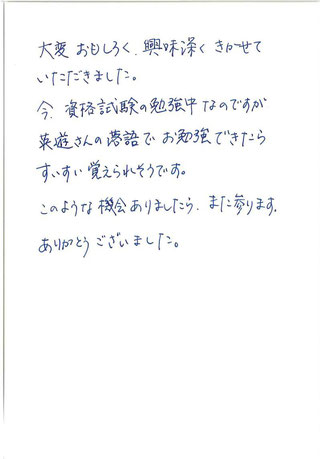 大変おもしろく、興味深くきかせて
いただきました。
今、資格試験の勉強中なのですが
英遊さんの落語でお勉強できたら
すいすい覚えられそうです。
このような機会ありましたら、また参ります。
ありがとうございました。